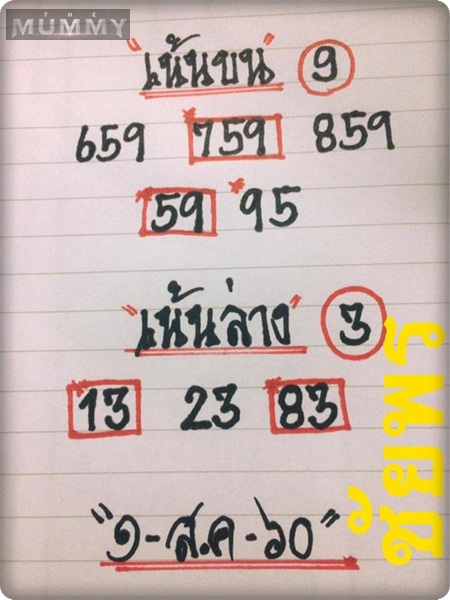 THE
MUMMY
"เน้นบน" 9
659 759 859
59 95
"เน้นล่าง" 3
13 23 83
"๑-ส.ค-๖๐"
ชัยพร